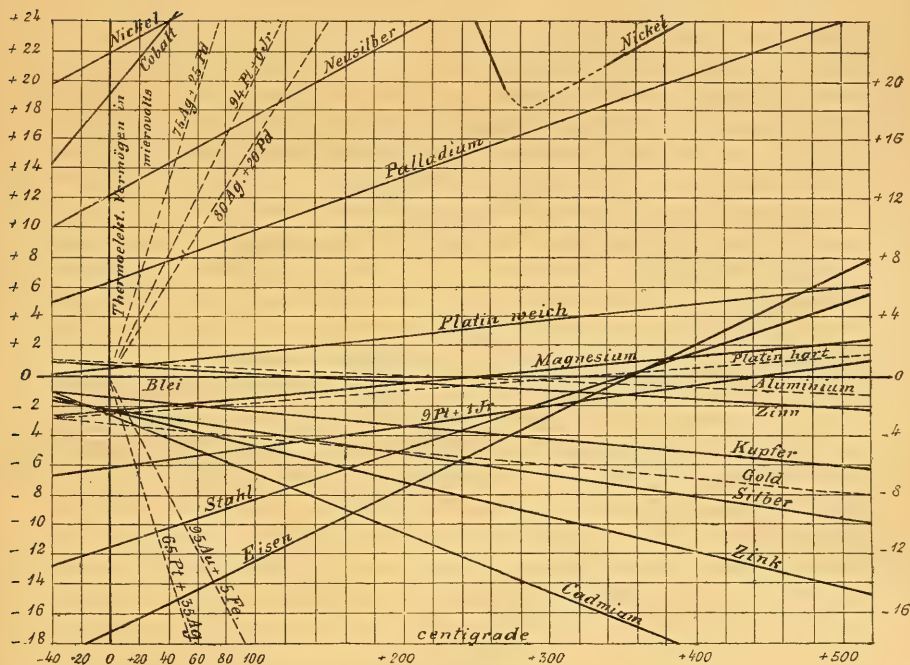 + 24
+ 22
+ 20
+ 18
+ 16
+ 14
+ 12
+ 10
+ 8
+ 6
+ 4
+ 2
0
- 2
- 4
- 6
- 8
- 10
- 12
- 14
- 16
- 18
Nickel
Cobalt
Thermoelekt. Vermögen in
mierovolts
75 Ag + 25 Pd
94 Pt + 6 Jr
80 Ag. + 20 Pd
Neusilber
Nickel
Palladium
Platin weich
Magnesium
Platin hart
Blei
Aluminium
9 Pt + 1 Jr
Zinn
Kupfer
Gold
Silber
Stahl
Eisen
Zink
65 Pt + 35 Ag
95 Au + 5 Fe
Cadmium
centigrade
+20
+16
+12
+8
+4
0
-4
-8
-12
-16
-40 -20 0 +20 40 60 80 100 +200 +300 +400 +500